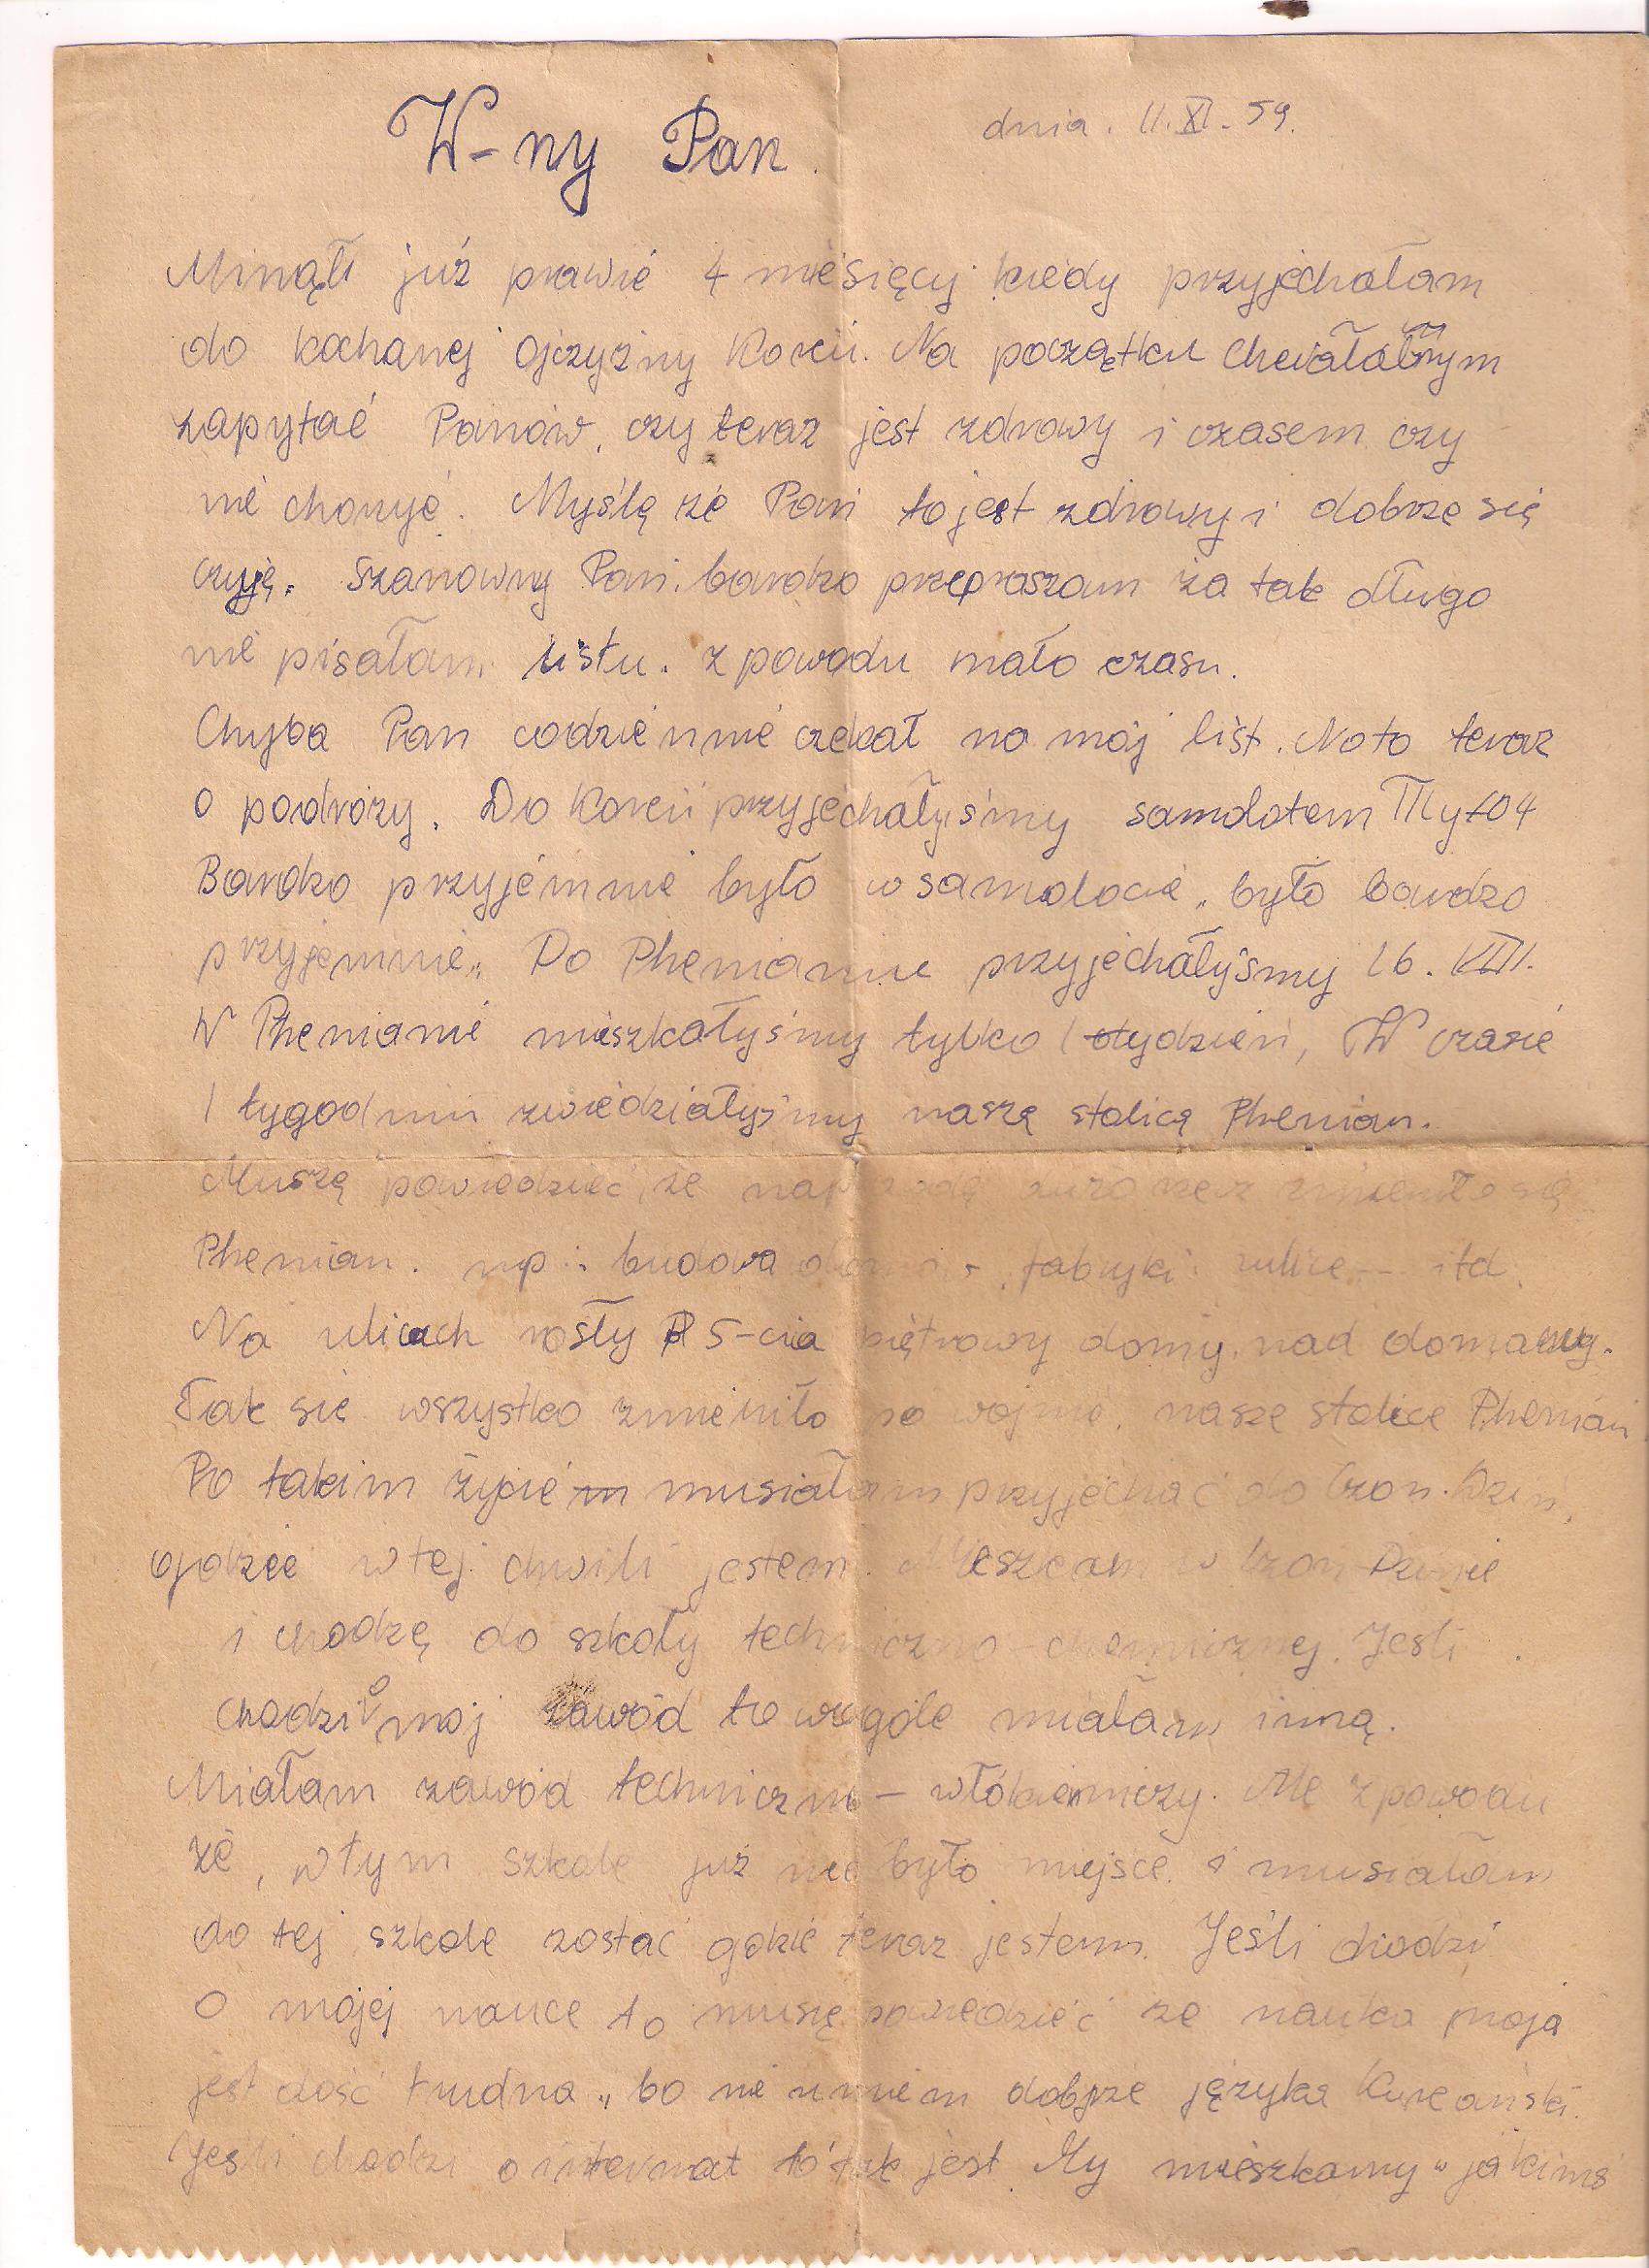 W-ny Pan.
dnia. 11.XI.59.
Minęłi już prawie 4 miesięcy kiedy przyjechałam
do kochanej Ojczyzny Korei. Na początku
zapytać Panów, czy teraz jest zdrowy i czasem czy
nie choruje. Myślę że Pan to jest zdrowy i dobrze się
czyję. Szanowny Pan. bardzo przepraszam za tak długo
nie pisałam listu. z powodu mało czasu.
Chyba Pan codziennie czekał na mój list. No to teraz
o podróży. Do Korei przyjechałyśmy samolotem TTTy 104
Bardzo przyjemnie było w samolocie, było bardzo
przyjemnie. Do Phenianie przyjechałyśmy 16. VIII.
W Phenianie mieszkałyśmy tylko 1 tydzień, W czasie
1 tygodniu zwiedziałyśmy naszą stolicą Phenian.
Muszę powiedzieć, że się
Phenian. np: budowa fabryki ulice itd.
Na ulicach rosły 5-cia piętrowy domy, nad domamy.
Tak się wszystko zmieniło po wojnie, nasze stolice Phenian
Po takim życie musiałam przyjechać do Czon-Dzin,
gdzie w tej chwili jestem. Mieszkam w
i chodzę do szkoły techniczno chemicznej. Jesli
chodzi o moj zawód to wogóle miałam inną.
Miałam zawód techniczno - włókienniczy. Ale z powodu
że, w tym szkole już nie było miejsce i musiałam
do tej szkole zostać gdzie teraz jestem. Jeśli chodzi
o mojej nauce to muszę powiedzieć że nauka moja
jest dość trudna, bo nie umiem dobrze języka Koreański.
Jesli chodzi o internat to tak jest My mieszkamy w jakims